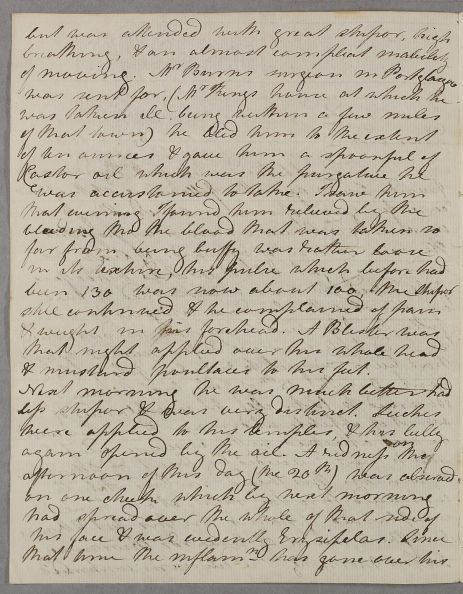 but was attended with great stupor, high
breathing, & an almost compleat inability
of moving. Mr Burns surgeon in Portglasgow
was sent for, (Mr King's house at which he
was taken ill being within a few miles
of that town) he bled him to the extent
of ten ounces & gave him a spoonful of
Castor oil which was the purgative he
was accustomed to take. I saw him
that evening I found him relieved by the
bleeding tho the blood that was taken so
far from being buffy was rather loose
in its texture, his pulse which before had
been 130 was now about 100, the stupor
still continued & he complained of pain
& weight in his forehead. A Blister was
that night applied over his whole head
& mustard poultaces to his feet.
Next morning he was much better had
less stupor & was very distinct. Leeches
were applied to his temples, & his belly
again opened by the oil. A redness on the
afternoon of this day (the 20th) was observed
on one cheek which by next morning
had spread over the whole of that side of
his face & was evidently Erysipelas. Since
that time the inflamn has gone over his